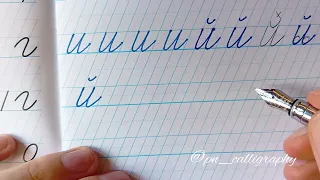 и и и и й й й й
й
@pn_calligraphy